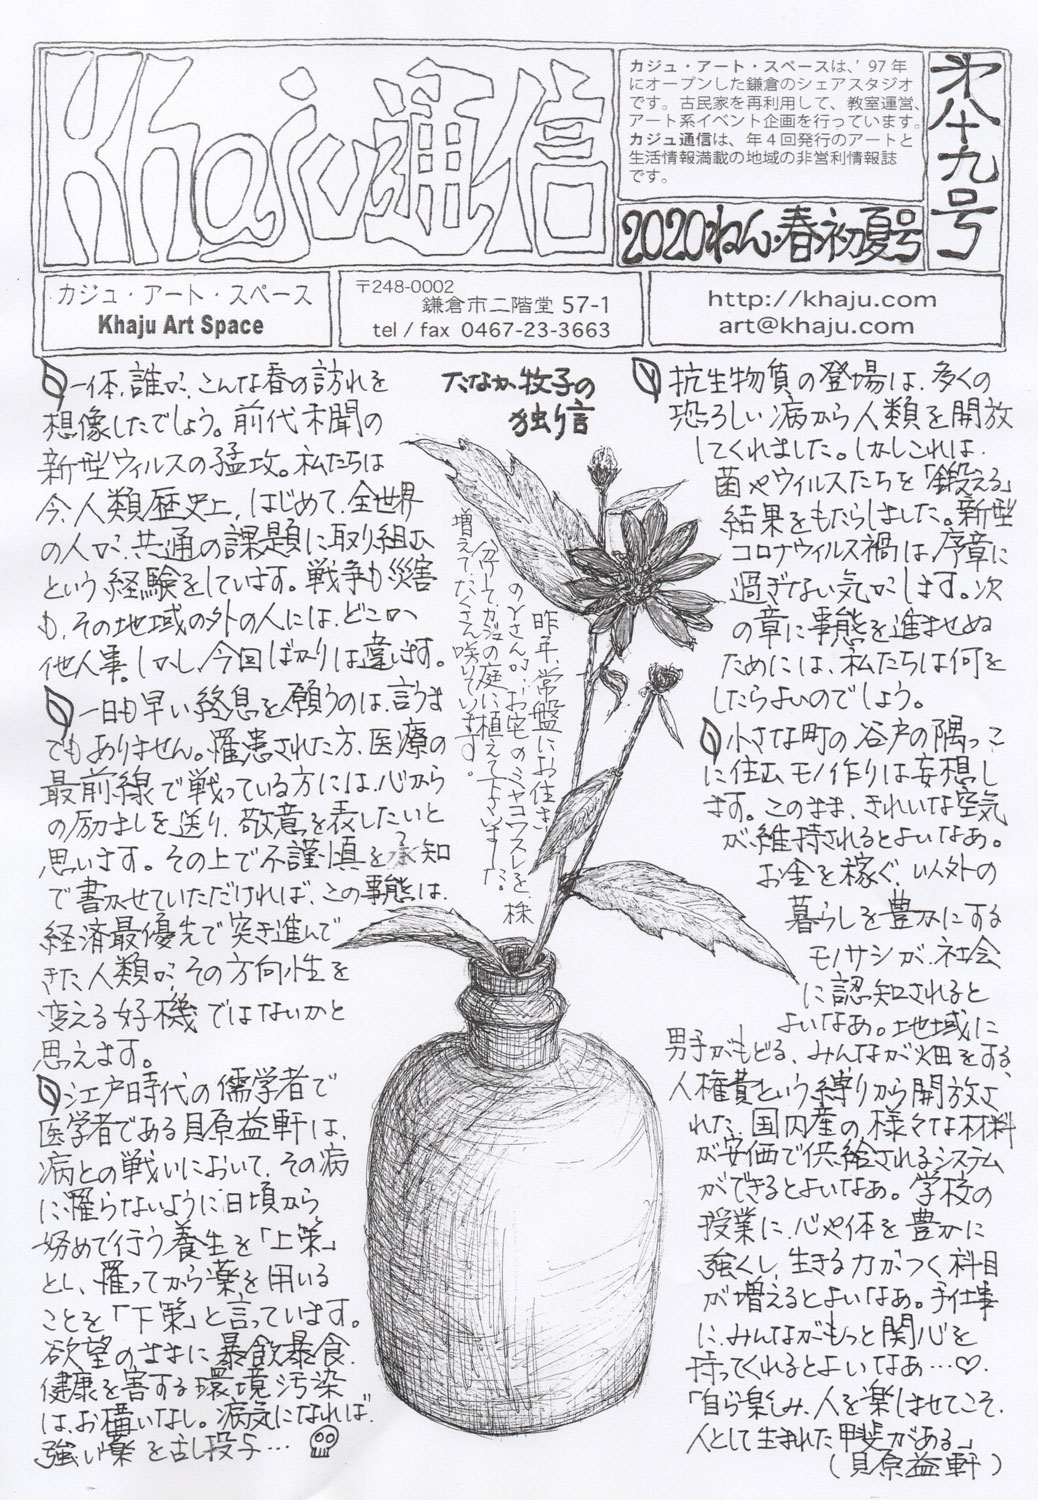 Khaju通信
カジュ・アート・スペースは、'97年
にオープンした鎌倉のシェアスタジオ
です。古民家を再利用して、教室運営、
アート系イベント企画を行っています。
カジュ通信は、年4回発行のアートと
生活情報満載の地域の非営利情報誌
です。
2020ねん・春・初夏号
第八十九号
カジュ・アート・スペース
Khaju Art Space
〒248-0002
鎌倉市二階堂 57-1
tel / fax 0467-23-3663
http://khaju.com
art@khaju.com
たなか牧子の
独り言
一体、誰が、こんな春の訪れを
想像したでしょう。前代未聞の
新型ウィルスの猛攻。私たちは
今、人類歴史上、はじめて、全世界
の人が、共通の課題に取り組む
という経験をしています。戦争も災害
も、その地域の外の人には、どこか
他人事。しかし、今回ばかりは違います。
一日も早い終息を願うのは、言うま
でもありません。罹患された方、医療の
最前線で戦っている方には、心から
の励ましを送り、敬意を表したいと
思います。その上で不謹慎を承知
で書かせていただければ、この事態は、
経済最優先で突き進んで
きた人類が、その方向性を
変える好機ではないかと
思えます。
江戸時代の儒学者で
医学者である貝原益軒は、
病との戦いにおいて、その病
に罹らないように日頃から
努めて行う養生を「上策」
とし、罹ってから薬を用いる
ことを「下策」と言っています。
欲望のままに暴飲暴食、
健康を害する環境汚染
は、お構いなし。病気になれば、
強い薬を古し投与…
昨年、常盤にお住まい
のYさんが、お宅のミヤコワスレを株
分けして、カジュの庭に植えて下さいました。
増えて、たくさん咲いています。
抗生物質の登場は、多くの
恐ろしい病から人類を開放
してくれました。しかしこれは、
菌やウィルスたちを「鍛える」
結果をもたらしました。新型
コロナウィルス禍は、序章に
過ぎない気がします。次
の章に事態を進ませぬ
ためには、私たちは何を
したらよいのでしょう。
小さな町の谷戸の隅っこ
に住むモノ作りは妄想し
ます。このまま、きれいな空気
が、維持されるとよいなあ。
お金を稼ぐ、以外の
暮らしを豊かにする
モノサシが、社会
に認知されると
よいなあ。地域に
男子がもどる、みんなが畑をする、
人権費という縛りから開放さ
れた、国内産の様々な材料
が安価で供給されるシステム
ができるとよいなあ。学校の
授業に、心や体を豊かに
強くし、生きる力がつく科目
が増えるとよいなあ。手仕事
に、みんながもっと関心を
持ってくれるとよいなあ…♡。
「自ら楽しみ、人を楽しませてこそ、
人として生まれた甲斐がある」
(貝原益軒)